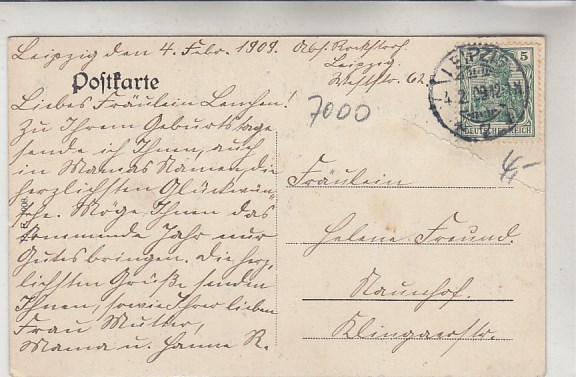 Leipzig den 4. Febr. 1909.
Abs. Rockstorf.
Leipzig.
Weststr. 62
Postkarte
Liebes Fräulein Lenchen!
Zu Ihrem Geburtstage
sende ich Ihnen, auch
in Mamas Namen, die
herzlichsten Glückwün-
sche. Möge Ihnen das
kommende Jahr nur
Gutes bringen. Die herz-
lichsten Grüße senden
Ihnen, sowie Ihrer lieben
Frau Mutter,
Mama u. Hanne R.
7000
LEIPZIG
4.2.09.12-1N
5
DEUTSCHES REICH
4,-
Fräulein
Helene Freund.
Naunhof.
Klingaerstr.